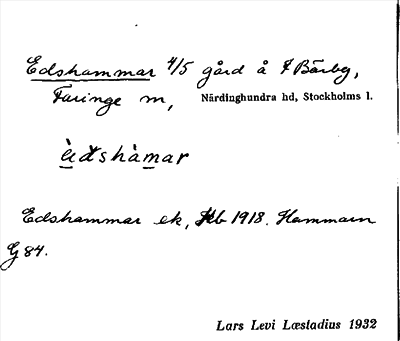 Edshammar 4/5 gård å f Bärby,
Faringe sn, Närdinghundra hd, Stockholms l.
àdshàmar
Edshammar ek, Hkb 1918. Hammarn
G 84.
Lars Levi Læstadius 1932